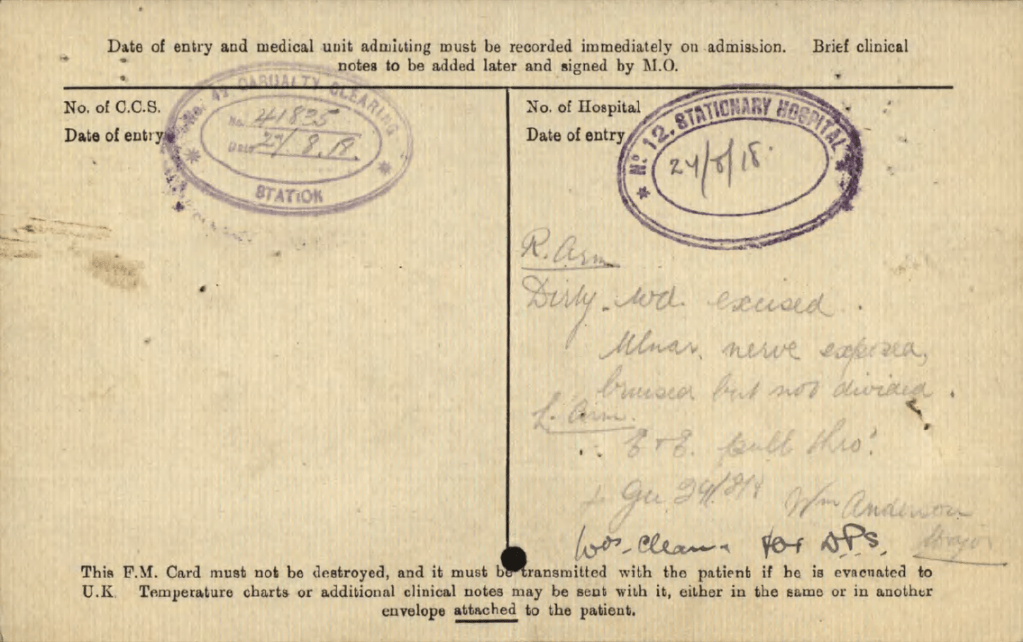 Date of entry and medical unit admitting must be recorded immediately on admission. Brief clinical
notes to be added later and signed by M.O.
No. of C.C.S.
Date of entry
No. 47 CASUALTY CLEARING
No. 41835
Date 27/8.18.
STATION
No. of Hospital
Date of entry
No. 12. STATIONARY HOSPITAL
24/8/18.
R. Arm
Dirty wd. excised.
Ulnar nerve exposed,
bruised but not divided.
L. Arm.
∴ E & E. pull thro'.
Wm Anderson
Major
Wds clean for D.P.S.
This F.M. Card must not be destroyed, and it must be transmitted with the patient if he is evacuated to
U.K. Temperature charts or additional clinical notes may be sent with it, either in the same or in another
envelope attached to the patient.